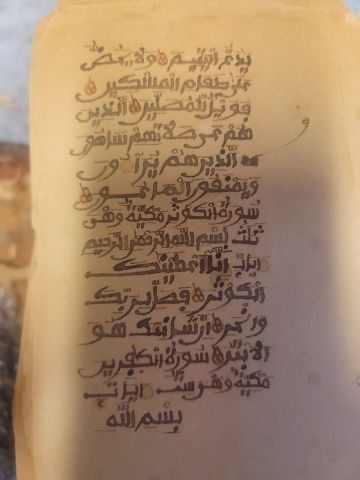 يدع اليتيم ولا يحض
على طعام المسكين
فويل للمصلين الذين
هم عن صلاتهم ساهو
ن الذين هم يرآءون
ويمنعون الماعون
سورة الكوثر مكية وهي
ثلث بسم الله الرحمن الرحيم
ايات انا اعطينك
الكوثر فصل لربك
وانحر ان شانئك هو
الابتر سورة الكفرين
مكية وهي ست ايات
بسم الله